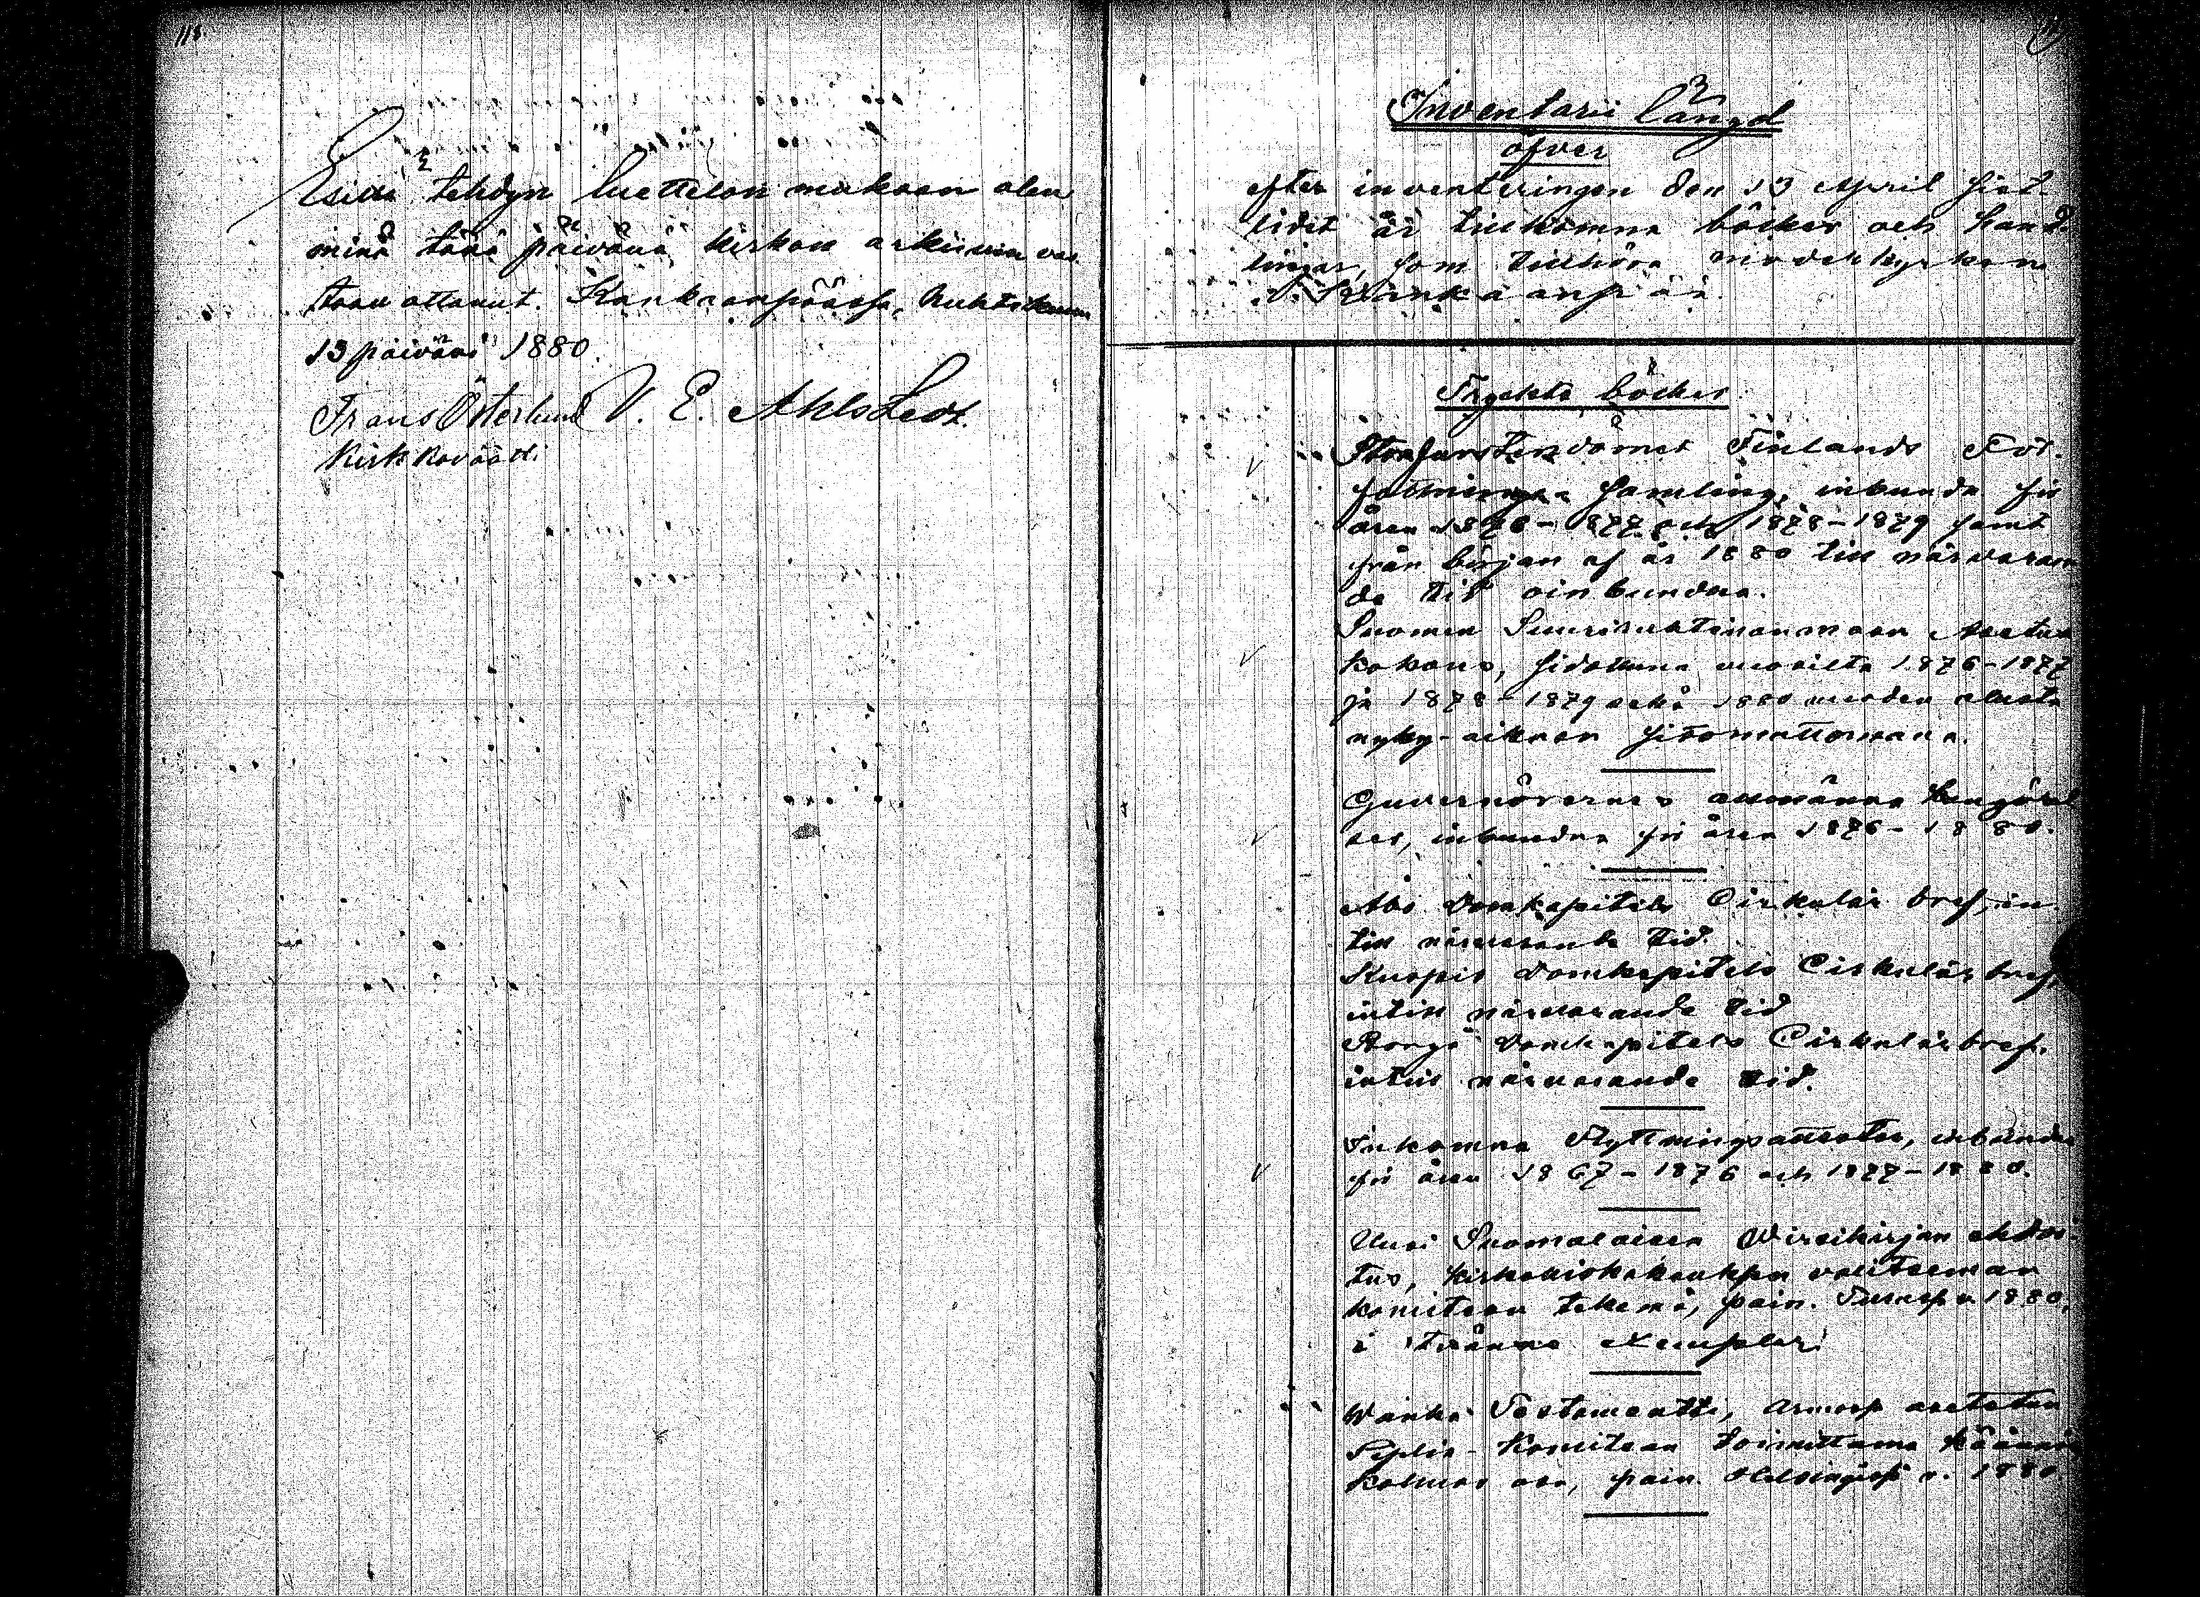 118.
Esillä tehdyn luettelon mukaan olen
minä tänä päivänä kirkon arkiivin vas-
taan ottanut. Kankaanpäässä, Huhtikuun
13 päivänä 1880.
Frans Österlund V. E. Ahlstedt.
Kirkkovääd:
Inventarii längd
öfver
efter inventeringen den 13 April sist-
lidet år tillkomna böcker och hand-
lingar, som tillhöra moderkyrkan
i Kankaanpää.
Tryckta böcker
Storfurstendömet Finlands För-
fattnings Samling, inbunda för
åren 1876-1877 och 1878-1879 samt
från början af år 1880 till närvaran-
de tid oinbundna.
Suomen Suuriruhtinanmaan Asetus
kokous, sidottuna vuosilta 1876-1877
ja 1878-1879 sekä 1880 vuoden alusta
nyky-aikaan sitomattomana.
Guvernörernes allmänna kungörel
ser, inbundna för åren 1876-1880.
Åbo Domkapitels Cirkulär bref, in
till närvarande tid.
Kuopio Domkapitels Cirkulär bref,
intill närvarande tid
Borgå Domkapitels Cirkulärbref.
intill närvarande tid.
Inkomna Flyttningsattester, inbundna
för åren 1867-1876 och 1877-1880.
Uusi Suomalaisen Wirsikirjan ehdoi-
tus, Kirkolliskokouksen valitseman
komitean tekemä, pain. Turussa v. 1880,
i tvänne exemplar.
Wanha Testamentti, armossa asetetun
Piplia-Komitean toimittama käännös
kolmas osa, pain. Helsingissä v. 1880.